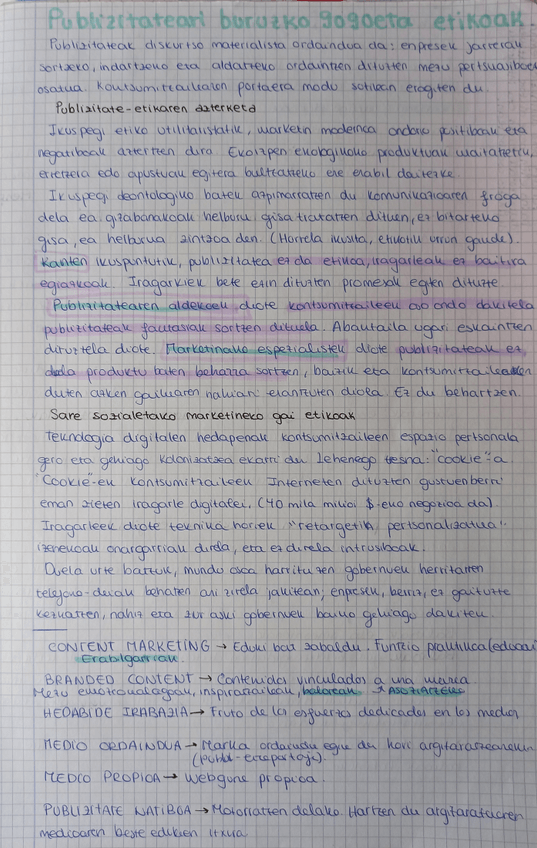 Publizitateari buruzko gogoeta etikoak.
Publizitateak diskurtso materialista ordaindua da: enpresek jarrerak
sortzeko, indartzeko eta aldatzeko ordaintzen dituzten mezu pertsuasiboek
osatua. Kontsumitzaileen portaera modu sotilean eragiten du.
Publizitate-etikaren azterketa
Ikuspegi etiko utilitaristatik, marketin modernoa ondorio positiboak eta
negatiboak aztertzen dira. Ekoizpen ekologikoko produktuak
edo apustuak egitera bultzatzeko ere erabil daiteke.
Ikuspegi deontologiko batek azpimarratzen du komunikazioaren froga
dela ea gizabanakoak helburu gisa tratatzen dituen, ez bitarteko
gisa, ea helburua zintzoa den. (Horrela ikusita, etikotik urrun gaude).
Kanten ikuspuntutik, publizitatea ez da etikoa, iragarleak ez baitira
egiazkoak. Iragarkiek bete ezin dituzten promesak egiten dituzte
Publizitatearen aldekoek diote kontsumitzaileek oso ondo dakitela
publizitateak fantasiak sortzen dituela. Abantaila ugari eskaintzen
dituztela diote. Marketinako espezialistek diote publizitateak ez
duela produktu baten beharra sortzen, baizik eta kontsumitzaileek
duten azken gailuaren nahiari erantzuten diola. Ez du behartzen.
Sare sozialetako marketineko gai etikoak
Teknologia digitalen hedapenak kontsumitzaileen espazio pertsonala
gero eta gehiago kolonizatzea ekarri du. Lehenego tresna: "cookie"-a
"Cookie"-eu kontsumitzaileek Interneten dituzten gustuen berri
eman zieten iragarle digitalei. (40 mila milioi $-eko negozioa da)
Iragarleek diote teknika horiek "retargetin pertsonalizatua"
izenekoak onargarriak direla, eta ez direla intrusiboak.
Duela urte batzuk, mundu osoa harritu zen gobernuek herritarren
telefono-deiak behatzen ari zirela jakitean, enpresek, berriz, ez gaituzte
kezkatzen, nahiz eta zur aski gobernuek baino gehiago dakiten.
CONTENT MARKETING → Eduki bat zabaldu. Funtzio praktikoa
Erabilgarriak.
BRANDED CONTENT → Contenidos vinculados a una marca
Mezu emozionalagoak, inspirazioak, baloreak
HEDABIDE IRABAZIA → Fruto de los esfuerzos dedicados en los medios
MEDIO ORDAINDUA → Marka ordaindu egin du hori argitaratzearen
(publi-erreportaje).
MEDIO PROPIOA → Webgune propioa.
PUBLIZITATE NATIBOA → Motorratzen delako. Hartzen du argitaratuaren
medioaren beste edukien itxura.